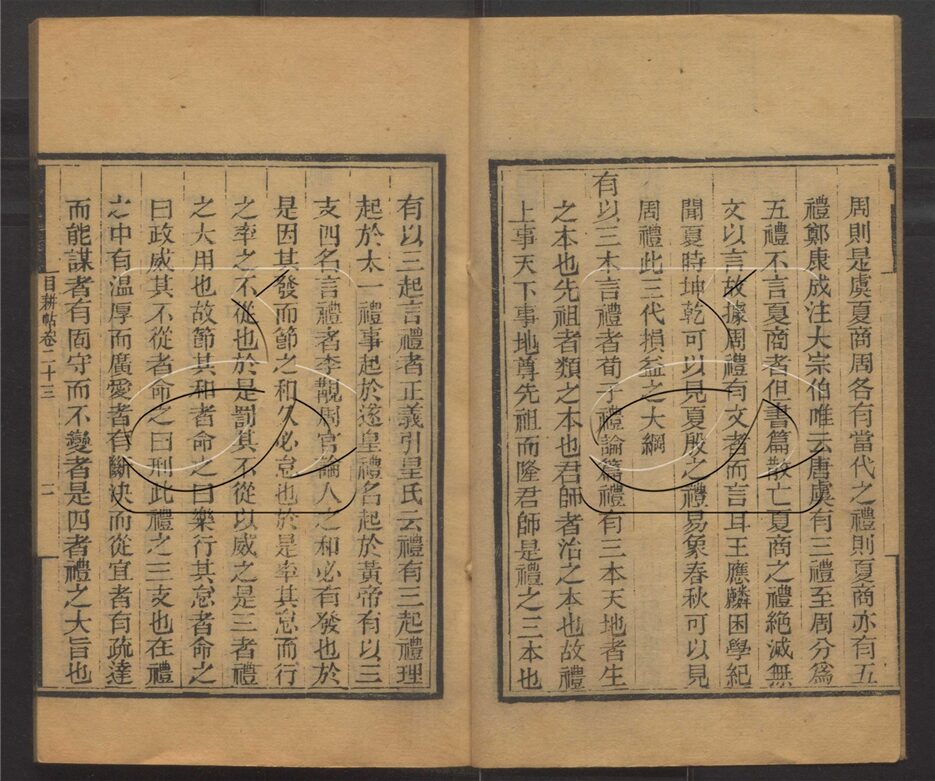 周則是虞夏商周各有當代之禮則夏商亦有五
禮鄭康成注大宗伯唯云唐虞有三禮至周分爲
五禮不言夏商者但書篇散亡夏商之禮絶滅無
文以言故據周禮有文者而言耳王應麟困學紀
聞夏時坤乾可以見夏殷之禮易象春秋可以見
周禮此三代損益之大綱
有以三本言禮者荀子禮論篇禮有三本天地者生
之本也先祖者類之本也君師者治之本也故禮
上事天下事地尊先祖而隆君師是禮之三本也
有以三起言禮者正義引皇氏云禮有三起禮理
起於太一禮事起於遂皇禮名起於黃帝有以三
支四名言禮者李覯周官論人之和必有發也於
是因其發而節之和久必怠也於是率其怠而行
之率之不從也於是罰其不從以威之是三者禮
之大用也故節其和者命之曰樂行其怠者命之
曰政威其不從者命之曰刑此禮之三支也在禮
之中有溫厚而廣愛者有斷決而從宜者有疏達
而能謀者有固守而不變者是四者禮之大旨也
目耕帖卷二十三
二